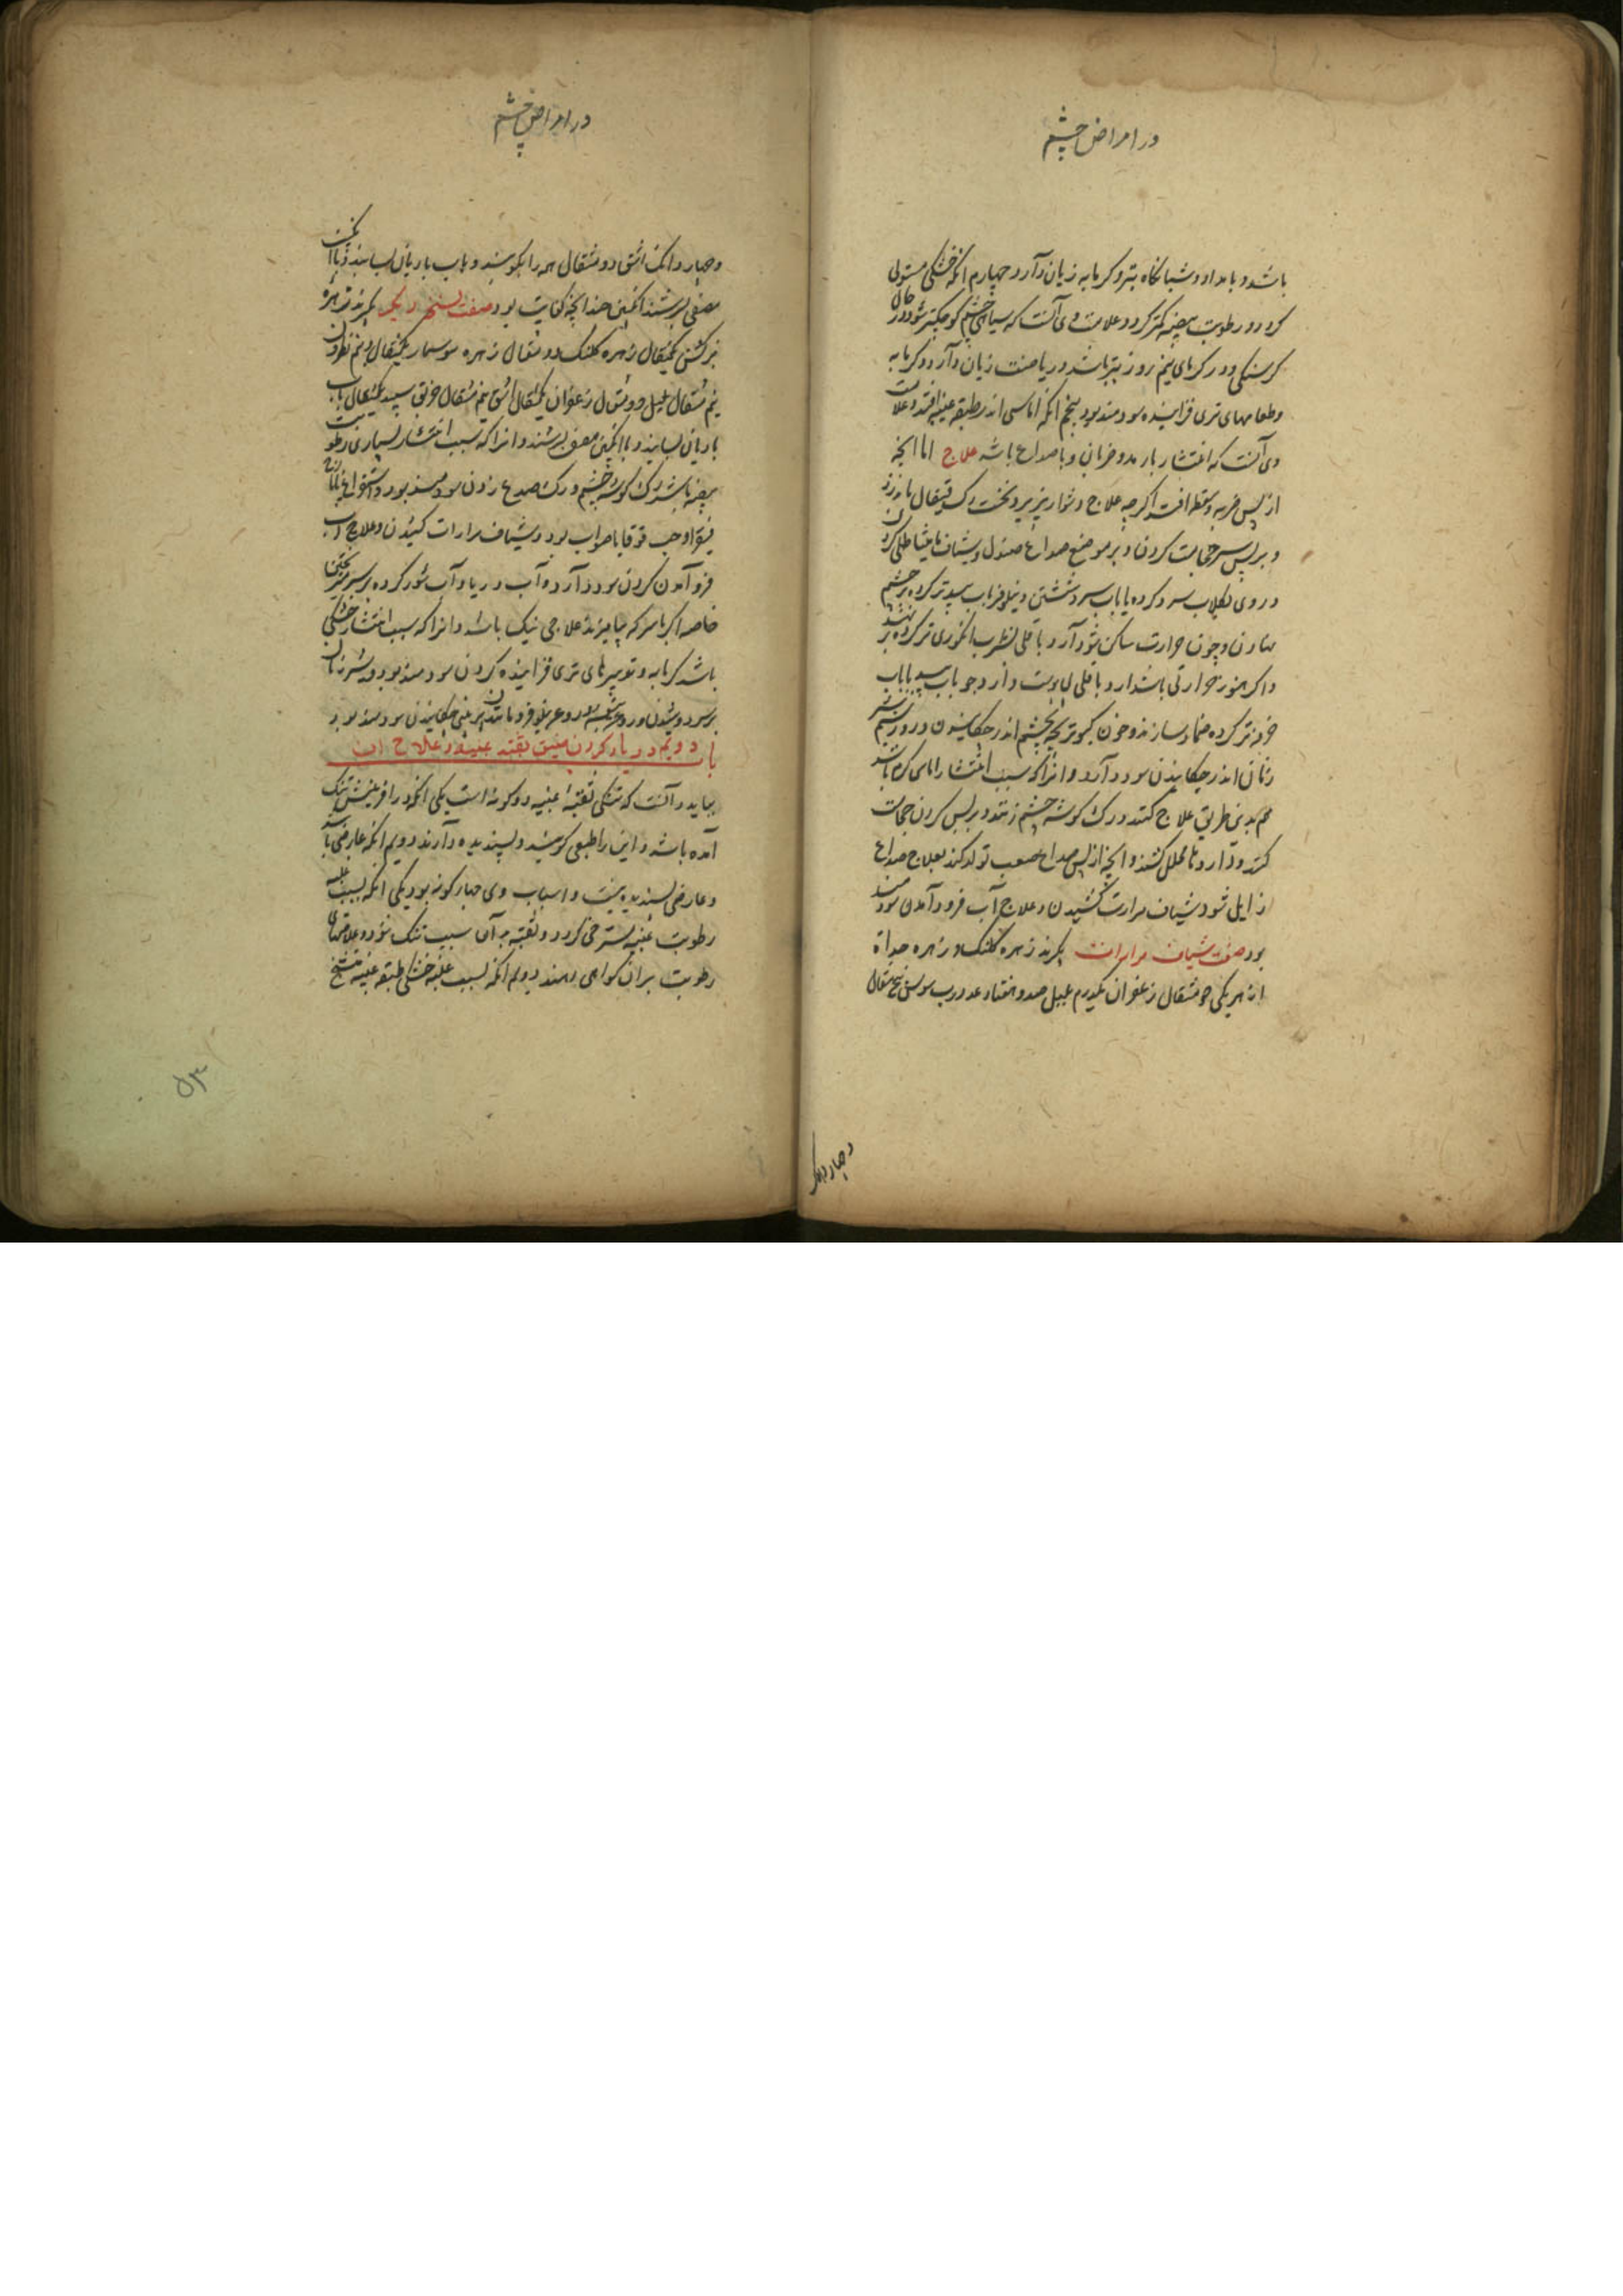 در امراض چشم
باشد و بامداد و شبانگاه بتر و کرمابه زیان دآرد چهارم انکه خشکی مستولی
کردد و رطوبت بیضیه کمتر کردد و علامت وی آنست که سیاهی چشم کوچکتر شود و در حال
کرسنکی و در کرمای نیم روز بتر باشد و ریاضت زیان دآرد و کرمابه
و طعامهای تری فزاینده سودمند بود پنجم انکه اماسی اندر طبقه عنبیه افتد و علامت
وی آنست که انتشار با درد و ضربان و با صداع باشد علاج اما انچه
از پس ضربه و سقطه افتد اکرچه علاج دشوار پذیرد نخست رک قیفال باید زدن
و بر پس سر حجامت کردن و بر موضع صداع صندل و شیاف مامیثا طلی کردن
و روی بکلاب سرد کرده یا باب سرد شستن و نیلوفر باب سپید تر کرده بر چشم
نهادن و چون حرارت ساکن شود آرد باقلی بشراب انکوری تر کرده بر نهند
و اکر هنوز حرارتی باشد ارد باقلی بی پوست و آرد جو باب سپید یا باب
خرفه تر کرده ضماد سازند و خون کبوتر بچه بچشم اندر چکانیدن و روز سیم شیر
زنان اندر چکانیدن سود دآرد و انرا که سبب انتشار اماس کرم باشد
هم بدین طریق علاج کنند و رک کوشه چشم زنند و بر پس کردن حجامت
کنند و داروها محلل کشند و انچه از پس صداع صعب تولد کند بعلاج صداع
زایل شود و شیاف مرارت کشیدن و علاج آب فرود آمدن سودمند
بود صفت شیاف مرارات بکیرند زهره کلنک و زهره حداة
از هر یکی دو مثقال زعفران یکدرم فلفل صد و هفتاد عدد رب سوس پنج مثقال
و چهار دانک
در امراض چشم
و چهار دانک اشق دو مثقال همه را بکوبند و باب بادیان بسایند و با انکبین
مصفی بسرشند انکبین چندانچه کفایت بود صفت نسخه دیکر بکیرند زهره
بز کشن یکمثقال زهره کلنک دو مثقال زهره سوسمار یکمثقال و نیم نطرون
نیم مثقال فلفل دو مثقال زعفران یکمثقال اشق نیم مثقال خربق سپید یکمثقال باب
بادیان بسایند و با انکبین مصفی بسرشند و انرا که سبب انتشار بسیاری رطوبت
بیضیه باشد رک کوشه چشم و رک صدغ زدن سودمند بود و استفراغ بایارج
فیقرا و حب قوقایا صواب بود و شیاف مرارات کشیدن و علاج آب
فرو آمدن کردن سود دآرد و آب دریا و آب شور کرده بر سر ریختن
خاصه اکر با سرکه بیامیزند علاجی نیک باشد و انرا که سبب انتشار خشکی
باشد کرمابه و تدبیرهای تری فزاینده کردن سودمند بود و شیر زنان
بر سر دوشیدن و روغن بنفشه و روغن نیلوفر و مانند آن بر بینی چکانیدن سودمند بود
باب دویم در یاد کردن ضیق ثقبه عنبیه و علاج ان
بباید دآنست که تنکی ثقبه عنبیه دو کونه است یکی انکه در افرینش تنک
آمده باشد و این را طبعی کویند و پسندیده دآرند دویم انکه عارضی باشد
و عارضی پسندیده نیست و اسباب وی چهار کونه بود یکی انکه بسبب غلبه
رطوبت عنبیه مسترخی کردد و ثقبه بدآن سبب تنک شود و علامتهای
رطوبت بران کواهی دهند دویم انکه بسبب غلبه خشکی طبقه عنبیه متشنج
۵۳